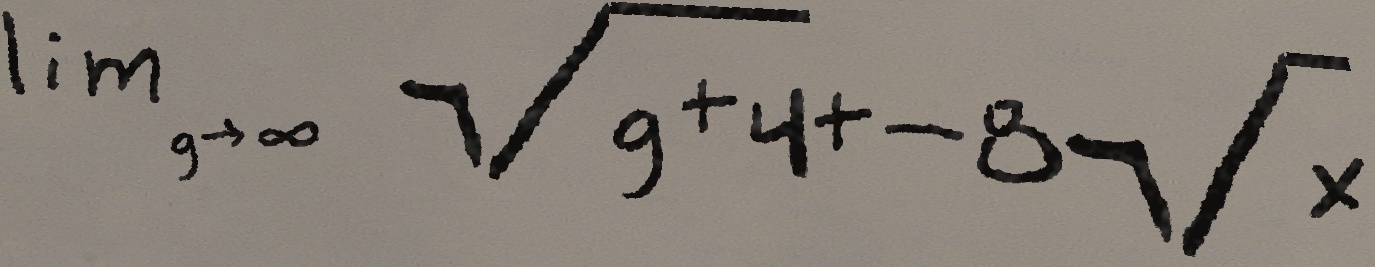 lim g→∞ √g+4+-8√x